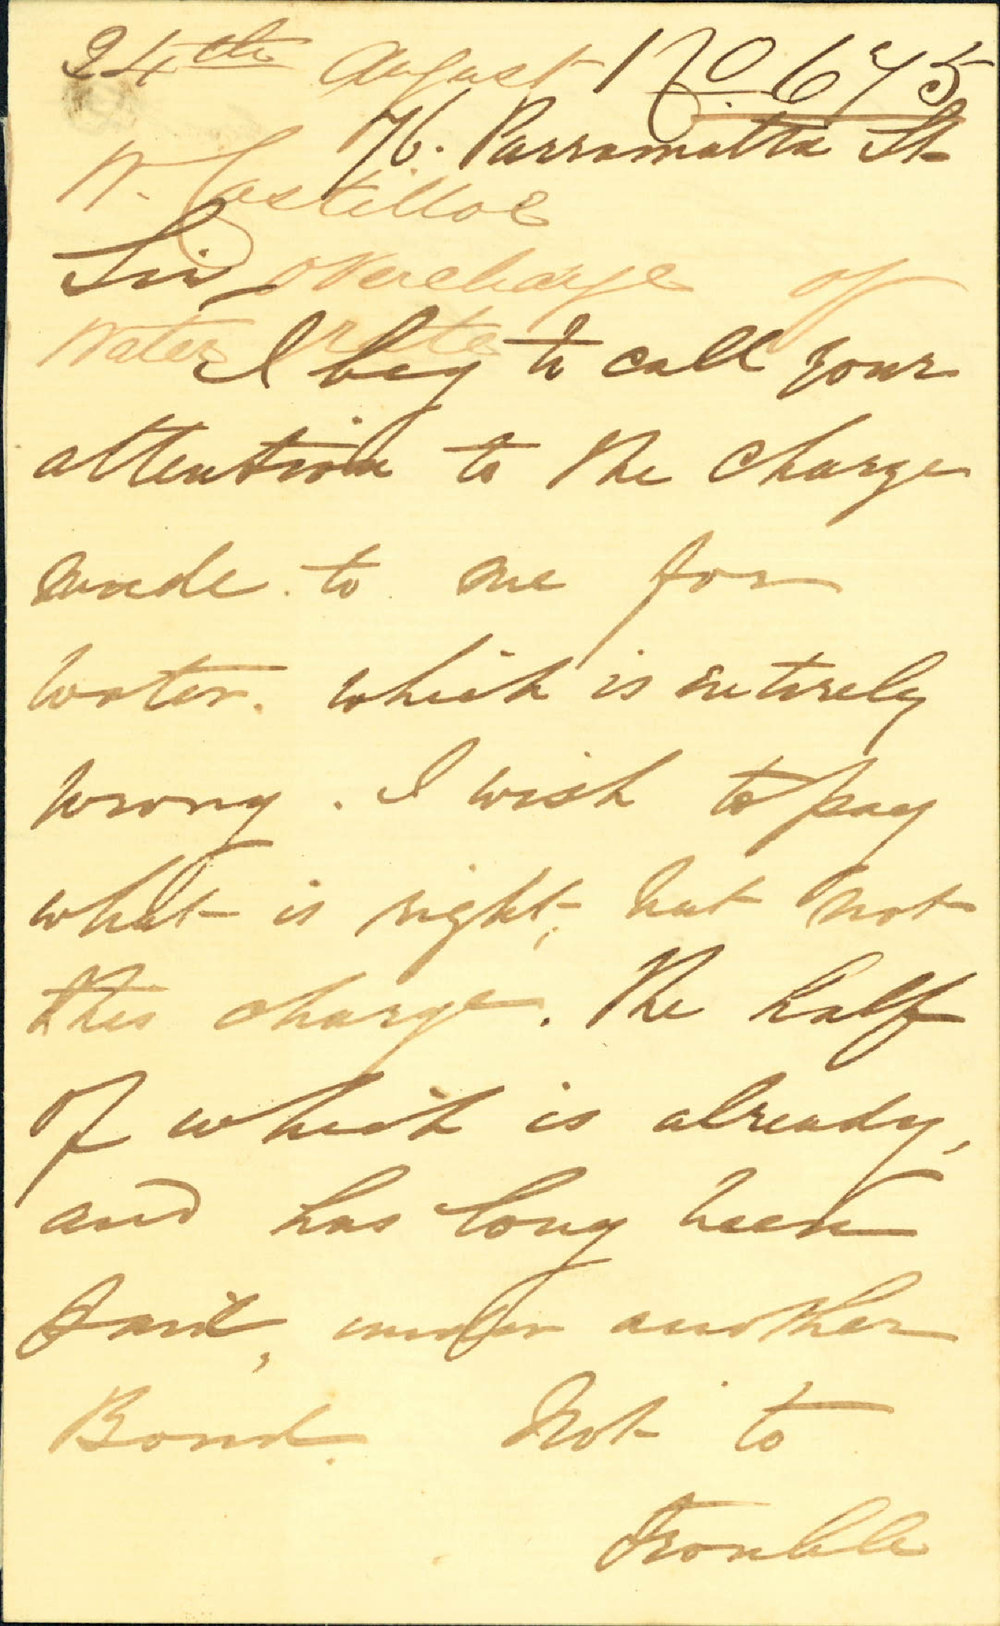 24th August No. 675
76. Parramatta St
W. Castilloe
Sir,
overcharge of
Water rate
I beg to call your
attention to the charge
made to me for
water. which is entirely
wrong. I wish to pay
what is right, but not
this charge. The half
of which is already,
and has long been
paid, under another
Bond. Not to
Trouble